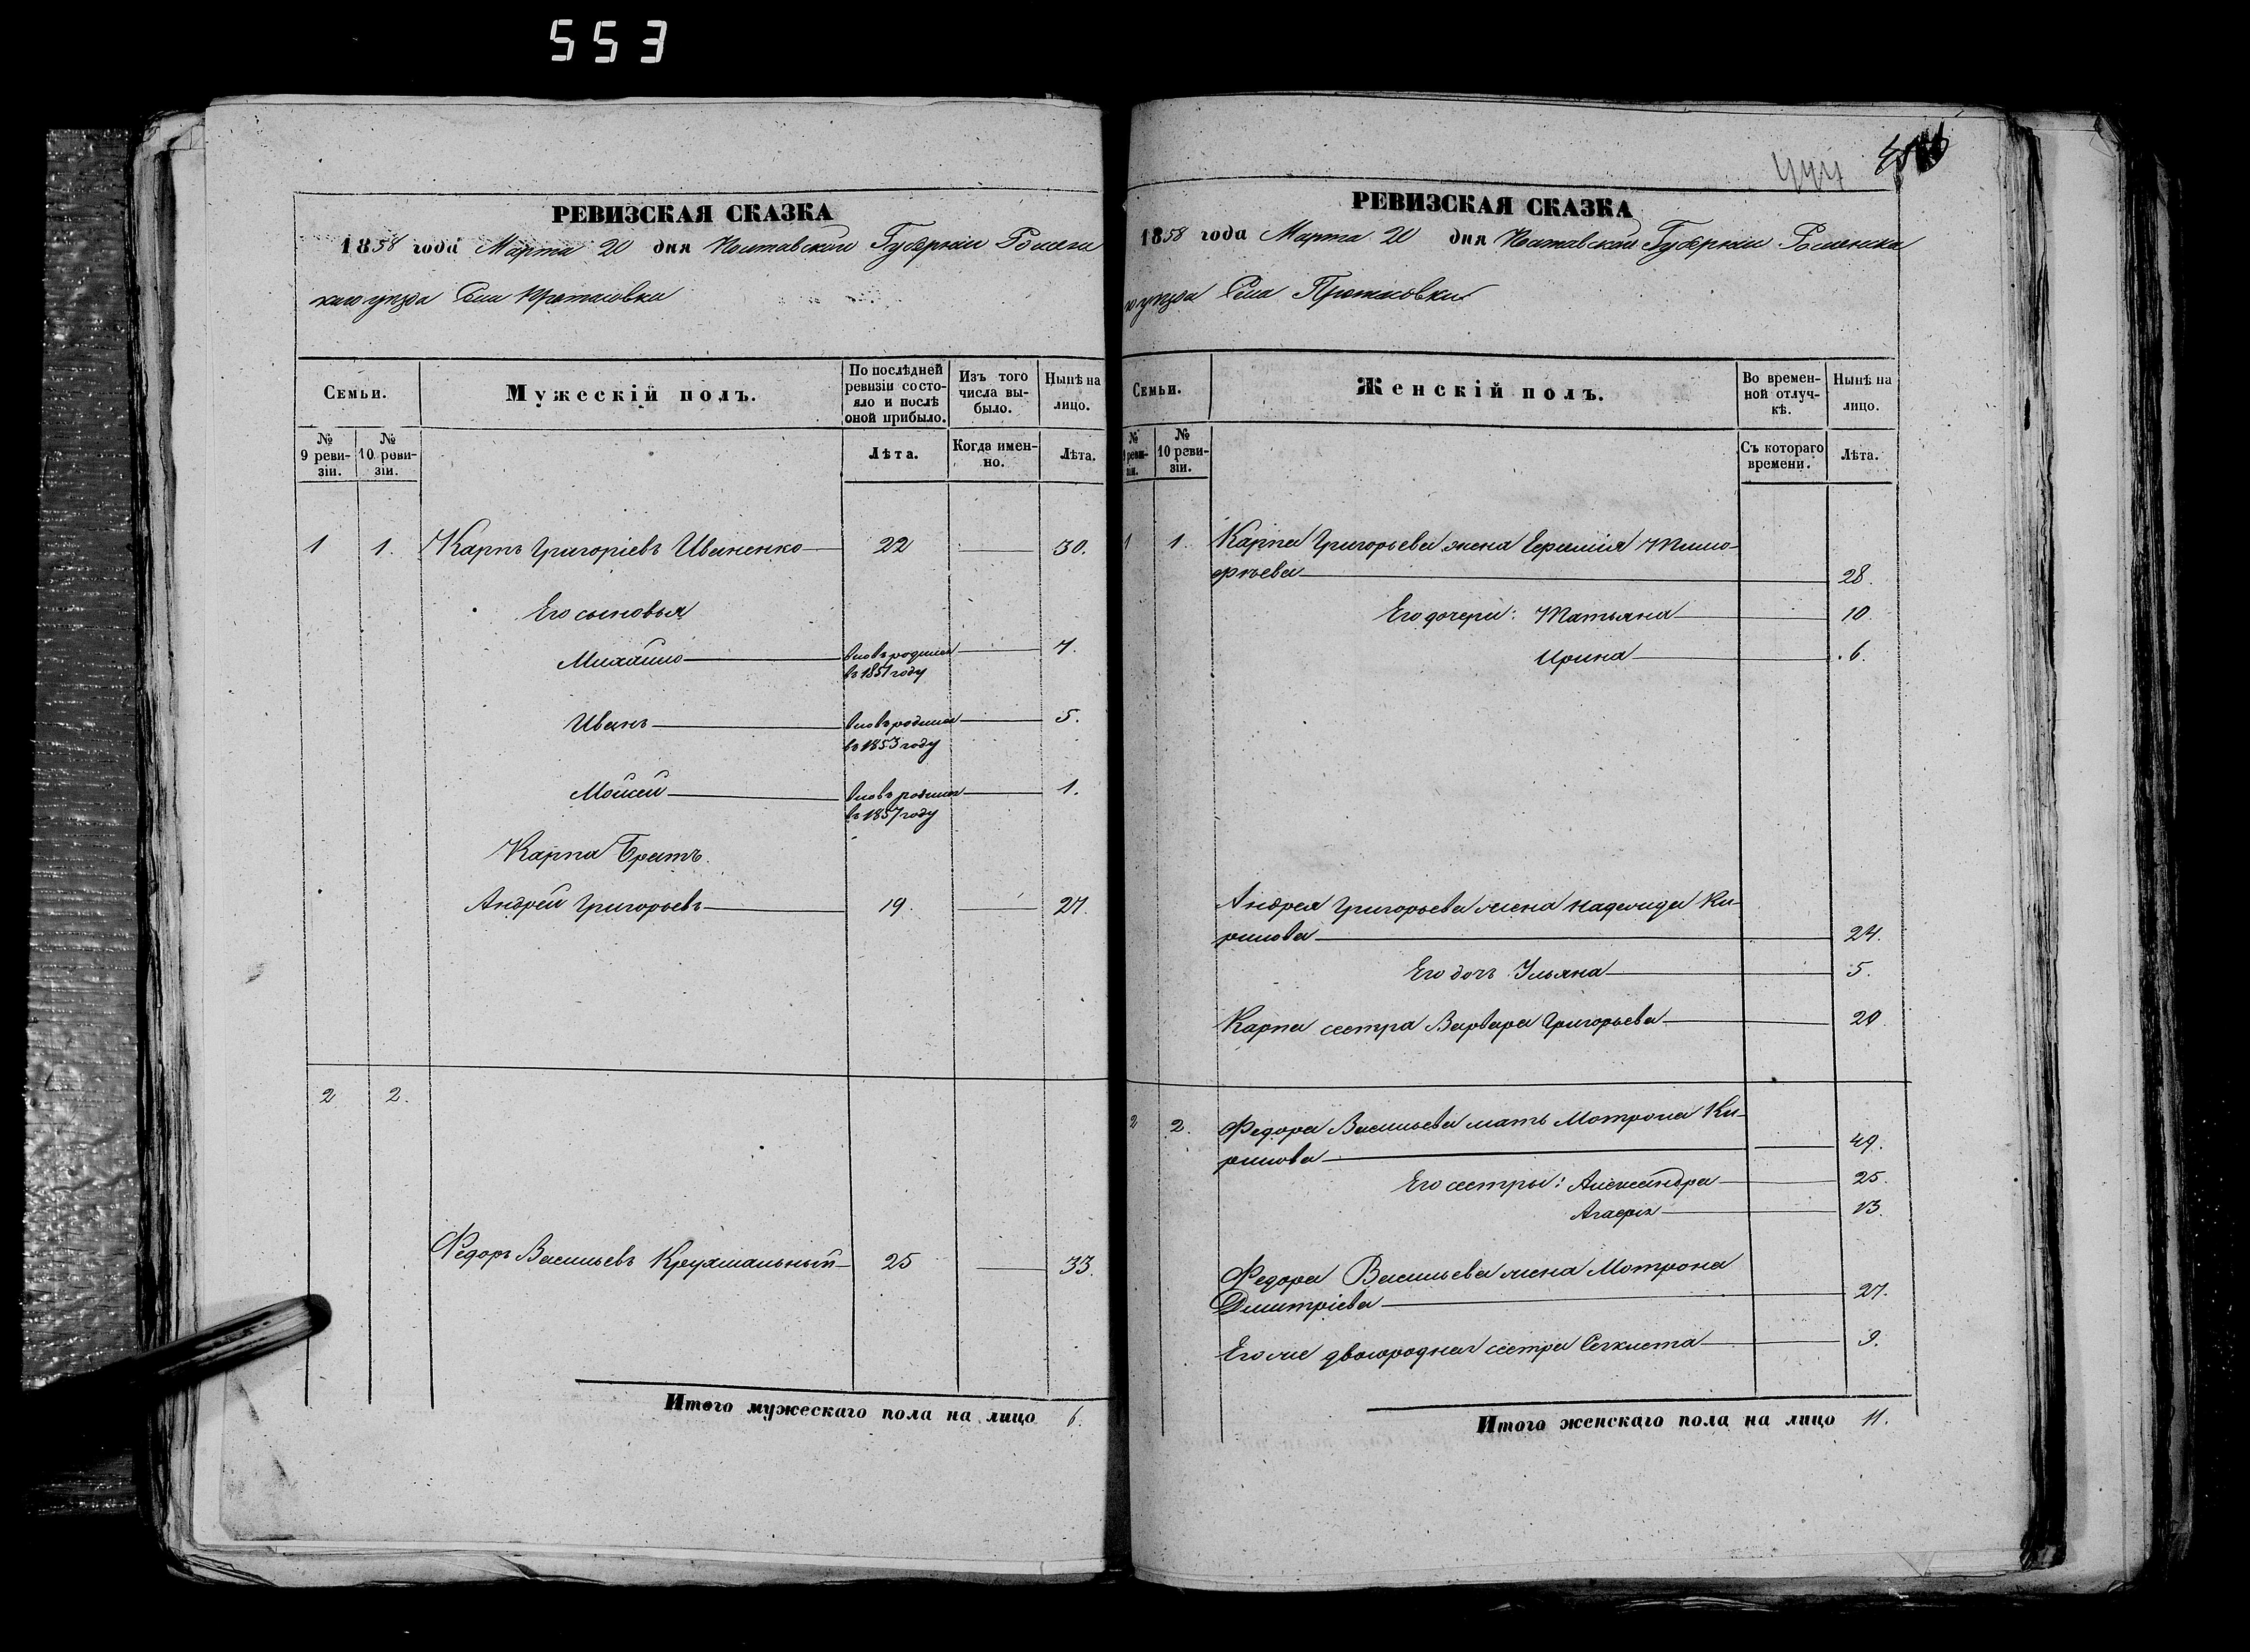 553
РЕВИЗСКАЯ СКАЗКА
1858 года Марта 20 дня Полтавской Губернии Роменс
каго уезда Села Протасовки
Семьи.
Мужескій полъ.
По послѣдней ревизіи состояло и послѣ оной прибыло.
Изъ того числа выбыло.
Нынѣ на лицо.
№ 9 ревизіи.
№ 10 ревизіи.
Лѣта.
Когда именно.
Лѣта.
1 1. Карпъ Григоріевъ Иваненко 22 30.
Его сыновья
Михайло вновь родился 7.
въ 1851 году
Иванъ вновь родился 5.
въ 1853 году
Мойсей вновь родился 1.
въ 1857 году
Карпа Братъ.
Андрей Григорьевъ 19. 27.
2 2.
Федоръ Васильевъ Крухмальный 25 33.
Итого мужескаго пола на лицо 6.
444
РЕВИЗСКАЯ СКАЗКА
1858 года Марта 20 дня Полтавской Губернии Роменска
го уезда Села Протасовки
Семьи.
Женскій полъ.
Во временной отлучкѣ.
Нынѣ на лицо.
№ 9 ревизіи.
№ 10 ревизіи.
Съ котораго времени.
Лѣта.
1 1. Карпа Григорьева жена Тимо-
фѣева 28.
Его дочери: Татьяна 10.
Ирина 6.
Андрея Григорьева жена Надежда Ки-
рилова 24.
Его дочь Ульяна 5.
Карпа сестра Варвара Григорьева 20
2 2. Федора Васильева мать Мотрона Ки-
рилова 49.
Его сестры: Александра 25.
Агафия 13.
Федора Васильева жена Мотрона
Дмитріева 27.
Его же двоюродная сестра 9.
Итого женскаго пола на лицо 11.